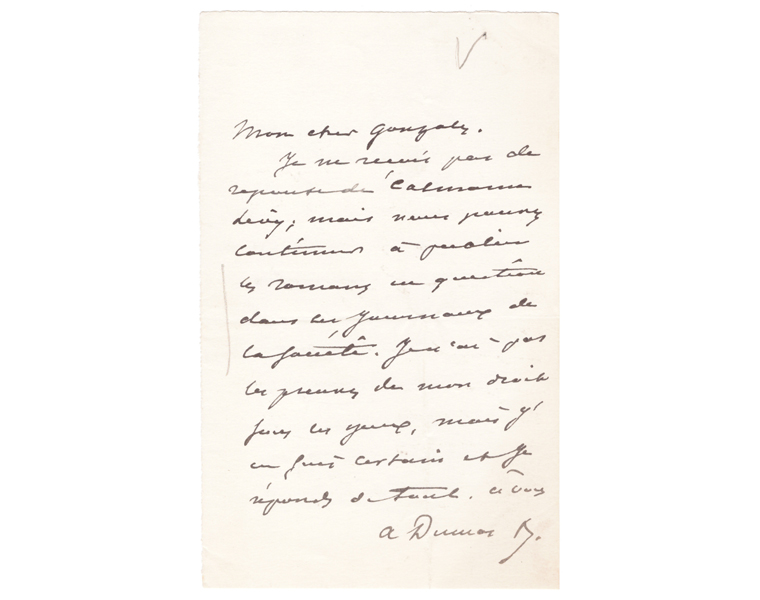 Mon cher Gonzalès.
Je ne reçois pas de
reponse de Calmann
Lévy; mais nous pouvons
continuer à publier
les romans en question
dans les journaux de
la société. Je n'ai pas
les preuves de mon droit
sous les yeux, mais j'
en suis certain et je
réponds de tout. à vous
A Dumas f.